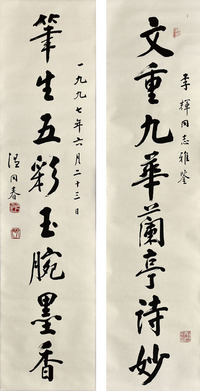 李輝同志雅鑒
文重九華蘭亭诗妙
筆生五彩玉腕墨香
一九九七年六月二十三日
温同春